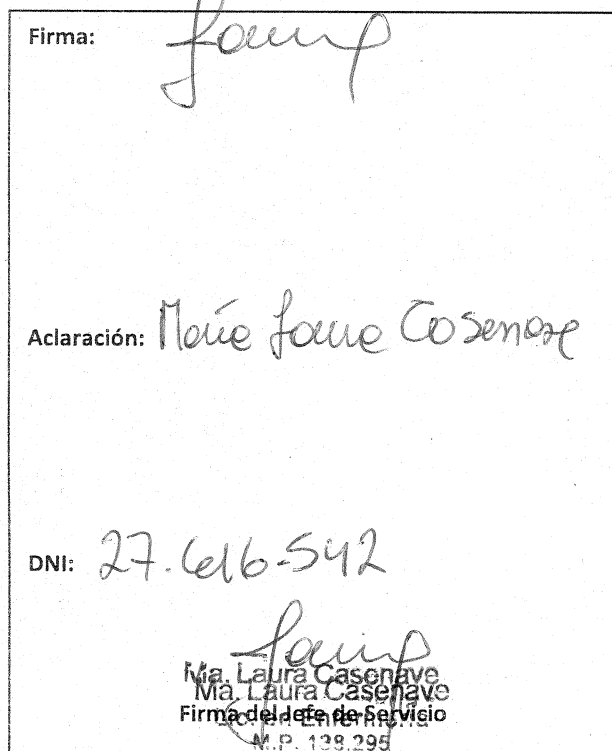 Firma: Laura
Aclaración: María Laura Casenave
DNI: 27.616.542
Ma. Laura Casenave
Ma. Laura Casenave
Lic. en Enfermería
Firma del Jefe de Servicio
M.P. 138.295